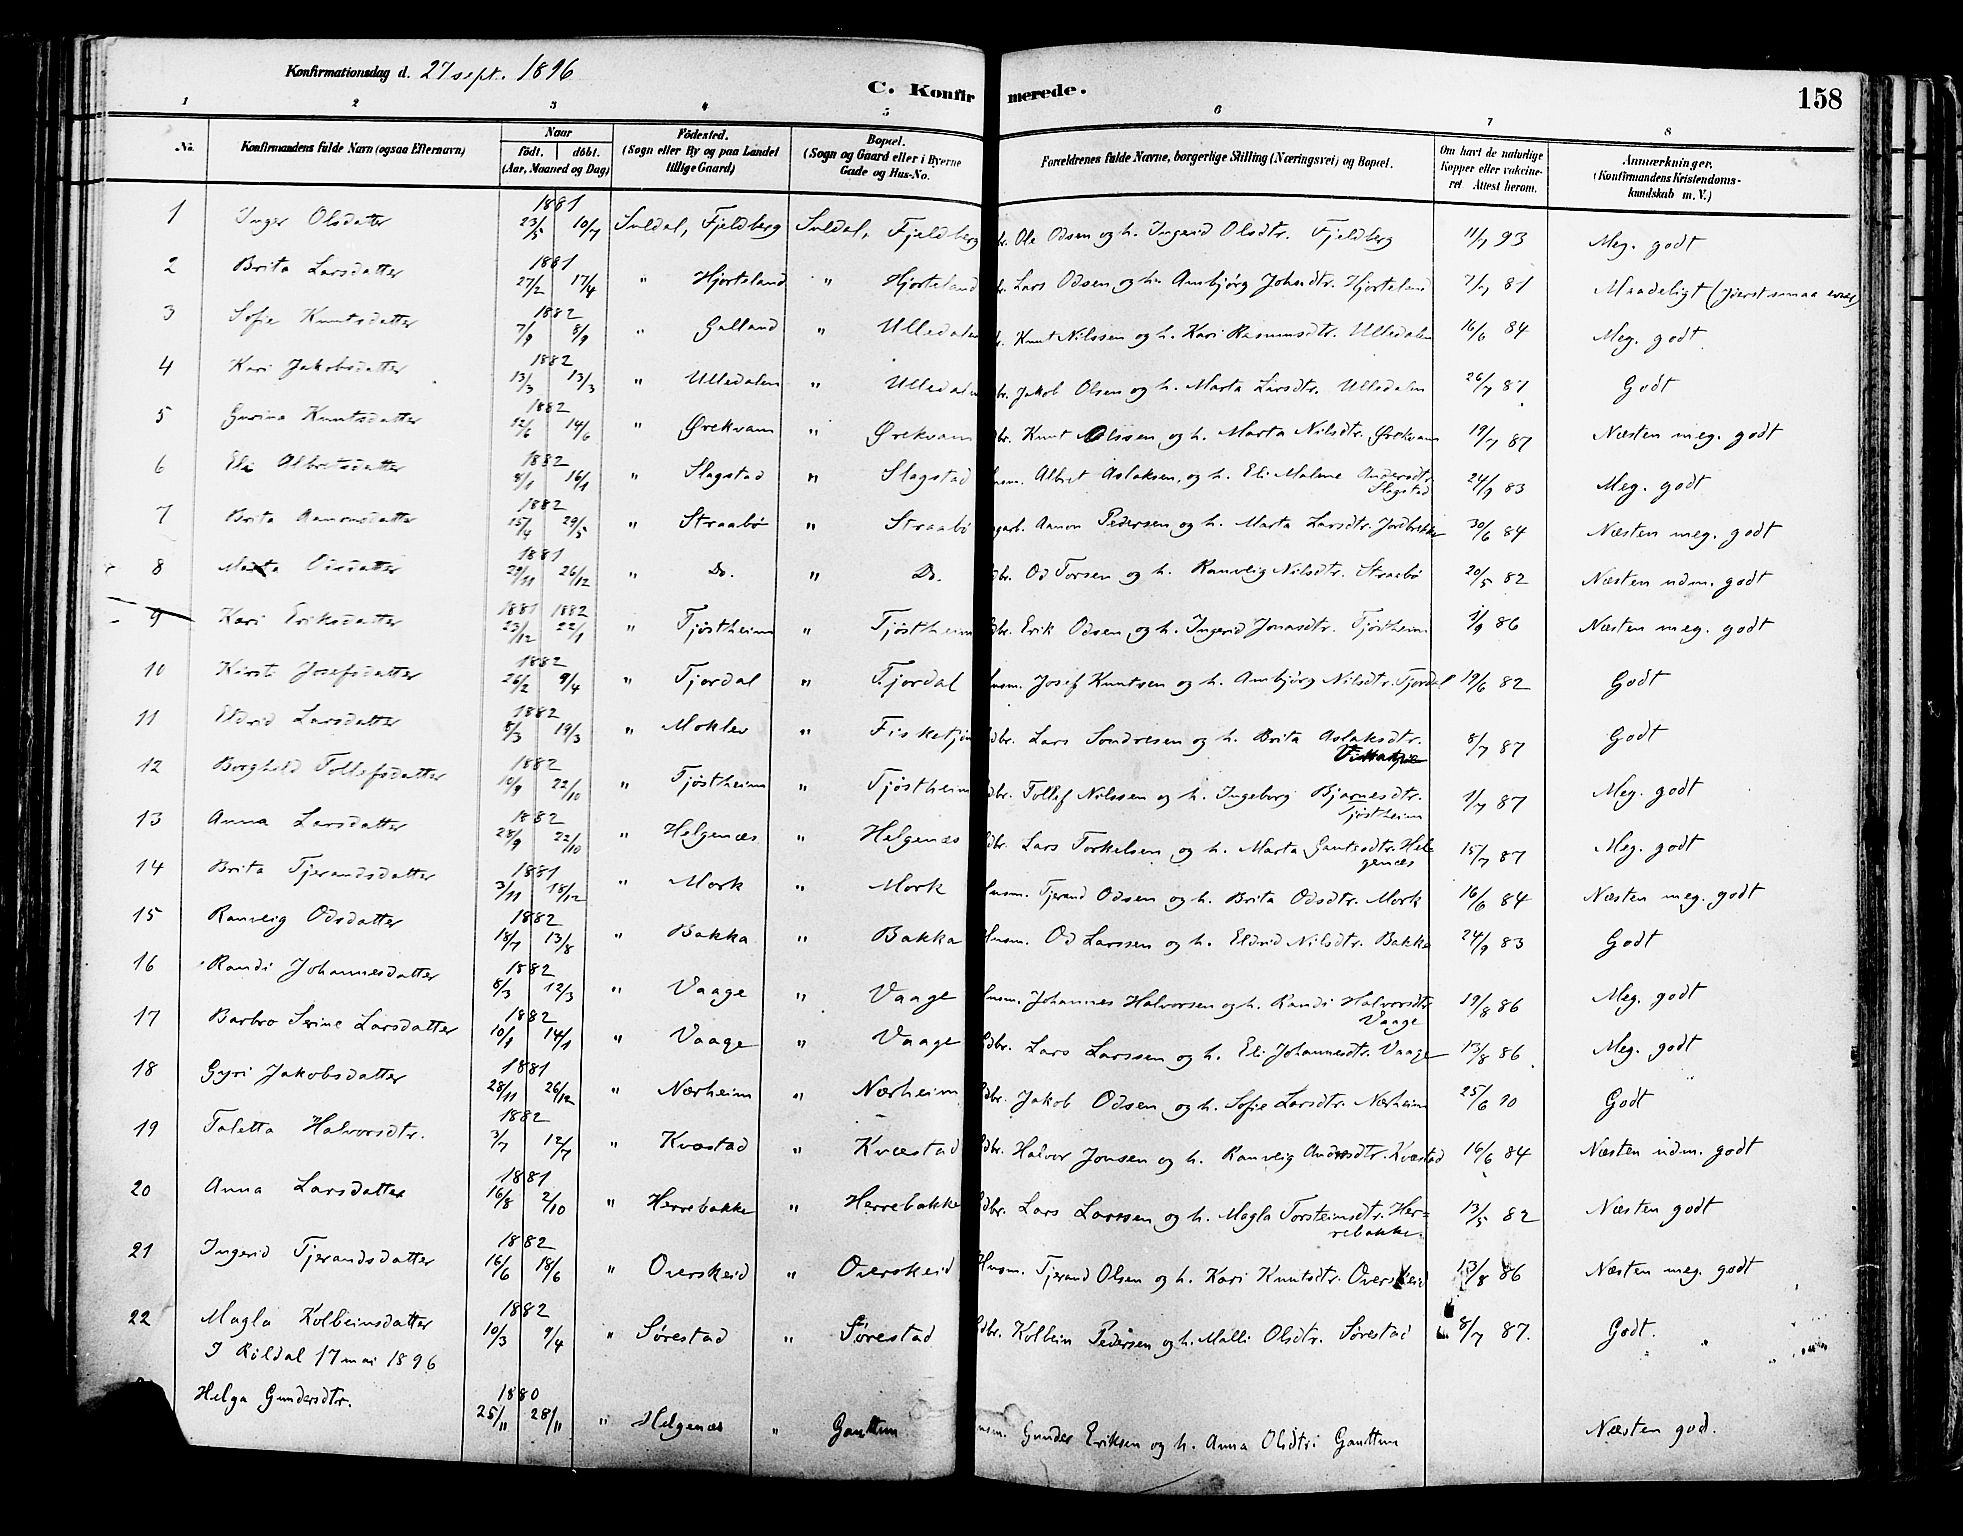 Konfirmationsdag d. 27 sept. 1896
C. Konfirmerede.
158
1 2 3 4 5 6 7 8
No. Konfirmandens fulde Navn (ogsaa Efternavn) Naar født. døbt. (Aar, Maaned og Dag) Fødested. (Sogn eller By og paa Landet tillige Gaard) Bopæl. (Sogn og Gaard eller i Byerne Gade og Hus-No. Forældrenes fulde Navne, borgerlige Stilling (Næringsvei) og Bopæl. Om havt de naturlige Kopper eller vakcineret Attest herom. Anmærkninger. (Konfirmandens Kristendomskundskab m. V.)
1 Inger Olsdatter 1881 23/5 10/7 Suldal, Fjeldberg Suldal, Fjeldberg br. Ole Odsen og h. Ingerid Olsdtr. Fjeldberg 11/7 93 Meg. godt
2 Brita Larsdatter 1881 27/2 17/4 " Hjorteland " Hjorteland br. Lars Odsen og h. Ambjørg Johsdtr. Hjorteland 7/7 81 Maadeligt
3 Sofie Knutsdatter 1882 7/9 8/9 " Galland " Ulledalen Knut Nilssen og h. Kari Rasmusdtr. Ulledalen 16/6 84 Meg. godt
4 Kari Jakobsdatter 1882 13/3 13/3 " Ulledalen " Ulledalen br. Jakob Olsen og h. Marta Larsdtr. Ulledalen 26/7 87 Godt
5 Gurina Knutsdatter 1882 12/6 14/6 " Ørekvam " Ørekvam dbr. Knut Olssen og h. Marta Nilsdtr. Ørekvam 19/7 87 Næsten meg. godt
6 Eli Albretsdatter 1882 8/1 16/1 " Slagstad " Slagstad usm. Albret Aslaksen og h. Eli Malene Andersdtr. Slagstad 24/9 83 Meg. godt
7 Brita Aamonsdatter 1882 15/4 29/5 " Straabø " Straabø garb. Aamon Pedersen og h. Marta Larsdtr. Jordbrekke 30/6 84 Næsten meg. godt
8 Marta Odsdatter 1881 29/11 26/12 " Do. " Do. dbr. Od Torsen og h. Ranveig Nilsdtr. Straabø 20/5 82 Næsten udm. godt
9 Kari Eriksdatter 1881 1882 23/12 22/1 " Tjøstheim " Tjøstheim dbr. Erik Odsen og h. Ingerid Jonasdtr. Tjøstheim 1/9 86 Næsten meg. godt
10 Kirsti Josefsdatter 1882 26/2 9/4 " Tjordal " Tjordal usm. Josef Knutsen og h. Ambjørg Nilsdtr. Tjordal 19/6 82 Godt
11 Eldrid Larsdatter 1882 8/3 19/3 " Moklev " Fisketjøn dbr. Lars Sondresen og h. Brita Aslaksdtr. 8/7 87 Godt
12 Borghild Tollefsdatter 1882 10/9 22/10 " Tjøstheim " Tjøstheim dbr. Tollef Nilssen og h. Ingeborg Bjarnesdtr. Tjøstheim 1/7 87 Meg. godt
13 Anna Larsdatter 1882 28/9 22/10 " Helgenæs " Helgenæs dbr. Lars Torkelsen og h. Marta Gautesdtr. Helgenæs 15/7 87 Meg. godt
14 Brita Tjerandsdatter 1881 3/11 18/12 " Mork " Mork Husm. Tjerand Odsen og h. Brita Odsdtr. Mork 16/6 84 Næsten meg. godt
15 Ranveig Odsdatter 1882 18/7 13/8 " Bakka " Bakka Husm. Od Larssen og h. Eldrid Nilsdtr. Bakka 24/9 83 Godt
16 Randi Johannesdatter 1882 8/3 12/3 " Vaage " Vaage Husm. Johannes Halvorsen og h. Randi Halvorsdtr. Vaage 19/8 86 Meg. godt
17 Barbro Serine Larsdatter 1882 10/1 14/1 " Vaage " Vaage Gdbr. Lars Larssen og h. Eli Johannesdtr. Vaage 13/8 86 Meg. godt
18 Gyri Jakobsdatter 1881 28/11 26/12 " Nærheim " Nærheim Gdbr. Jakob Odsen og h. Sofie Larsdtr. Nærheim 25/6 90 Godt
19 Taletta Halvorsdtr. 1882 3/7 12/7 " Kvæstad " Kvæstad Gdbr. Halvor Jonsen og h. Ranveig Andersdtr. Kvæstad 16/6 84 Næsten udm. godt
20 Anna Larsdatter 1881 16/8 2/10 " Herrebakke " Herrebakke Gdbr. Lars Larssen og h. Magla Torsteinsdtr. Herrebakke 13/5 82 Næsten godt
21 Ingerid Tjerandsdatter 1882 16/6 18/6 " Overskeid " Overskeid Husm. Tjerand Olsen og h. Kari Knutsdtr. Overskeid 13/8 86 Næsten meg. godt
22 Magla Kolbeinsdatter 1882 10/3 9/4 " Sørestad " Sørestad Gdbr. Kolbein Pedersen og h. Malli Olsdtr. Sørestad 8/7 87. Godt.
I Røldal 17 mai 1896
Helga Gundersdtr. 1880 25/11 28/11 " Helgenæs " Gauttun usm. Gunder Eriksen og h. Anna Olsdtr. Gauttun Næsten god.